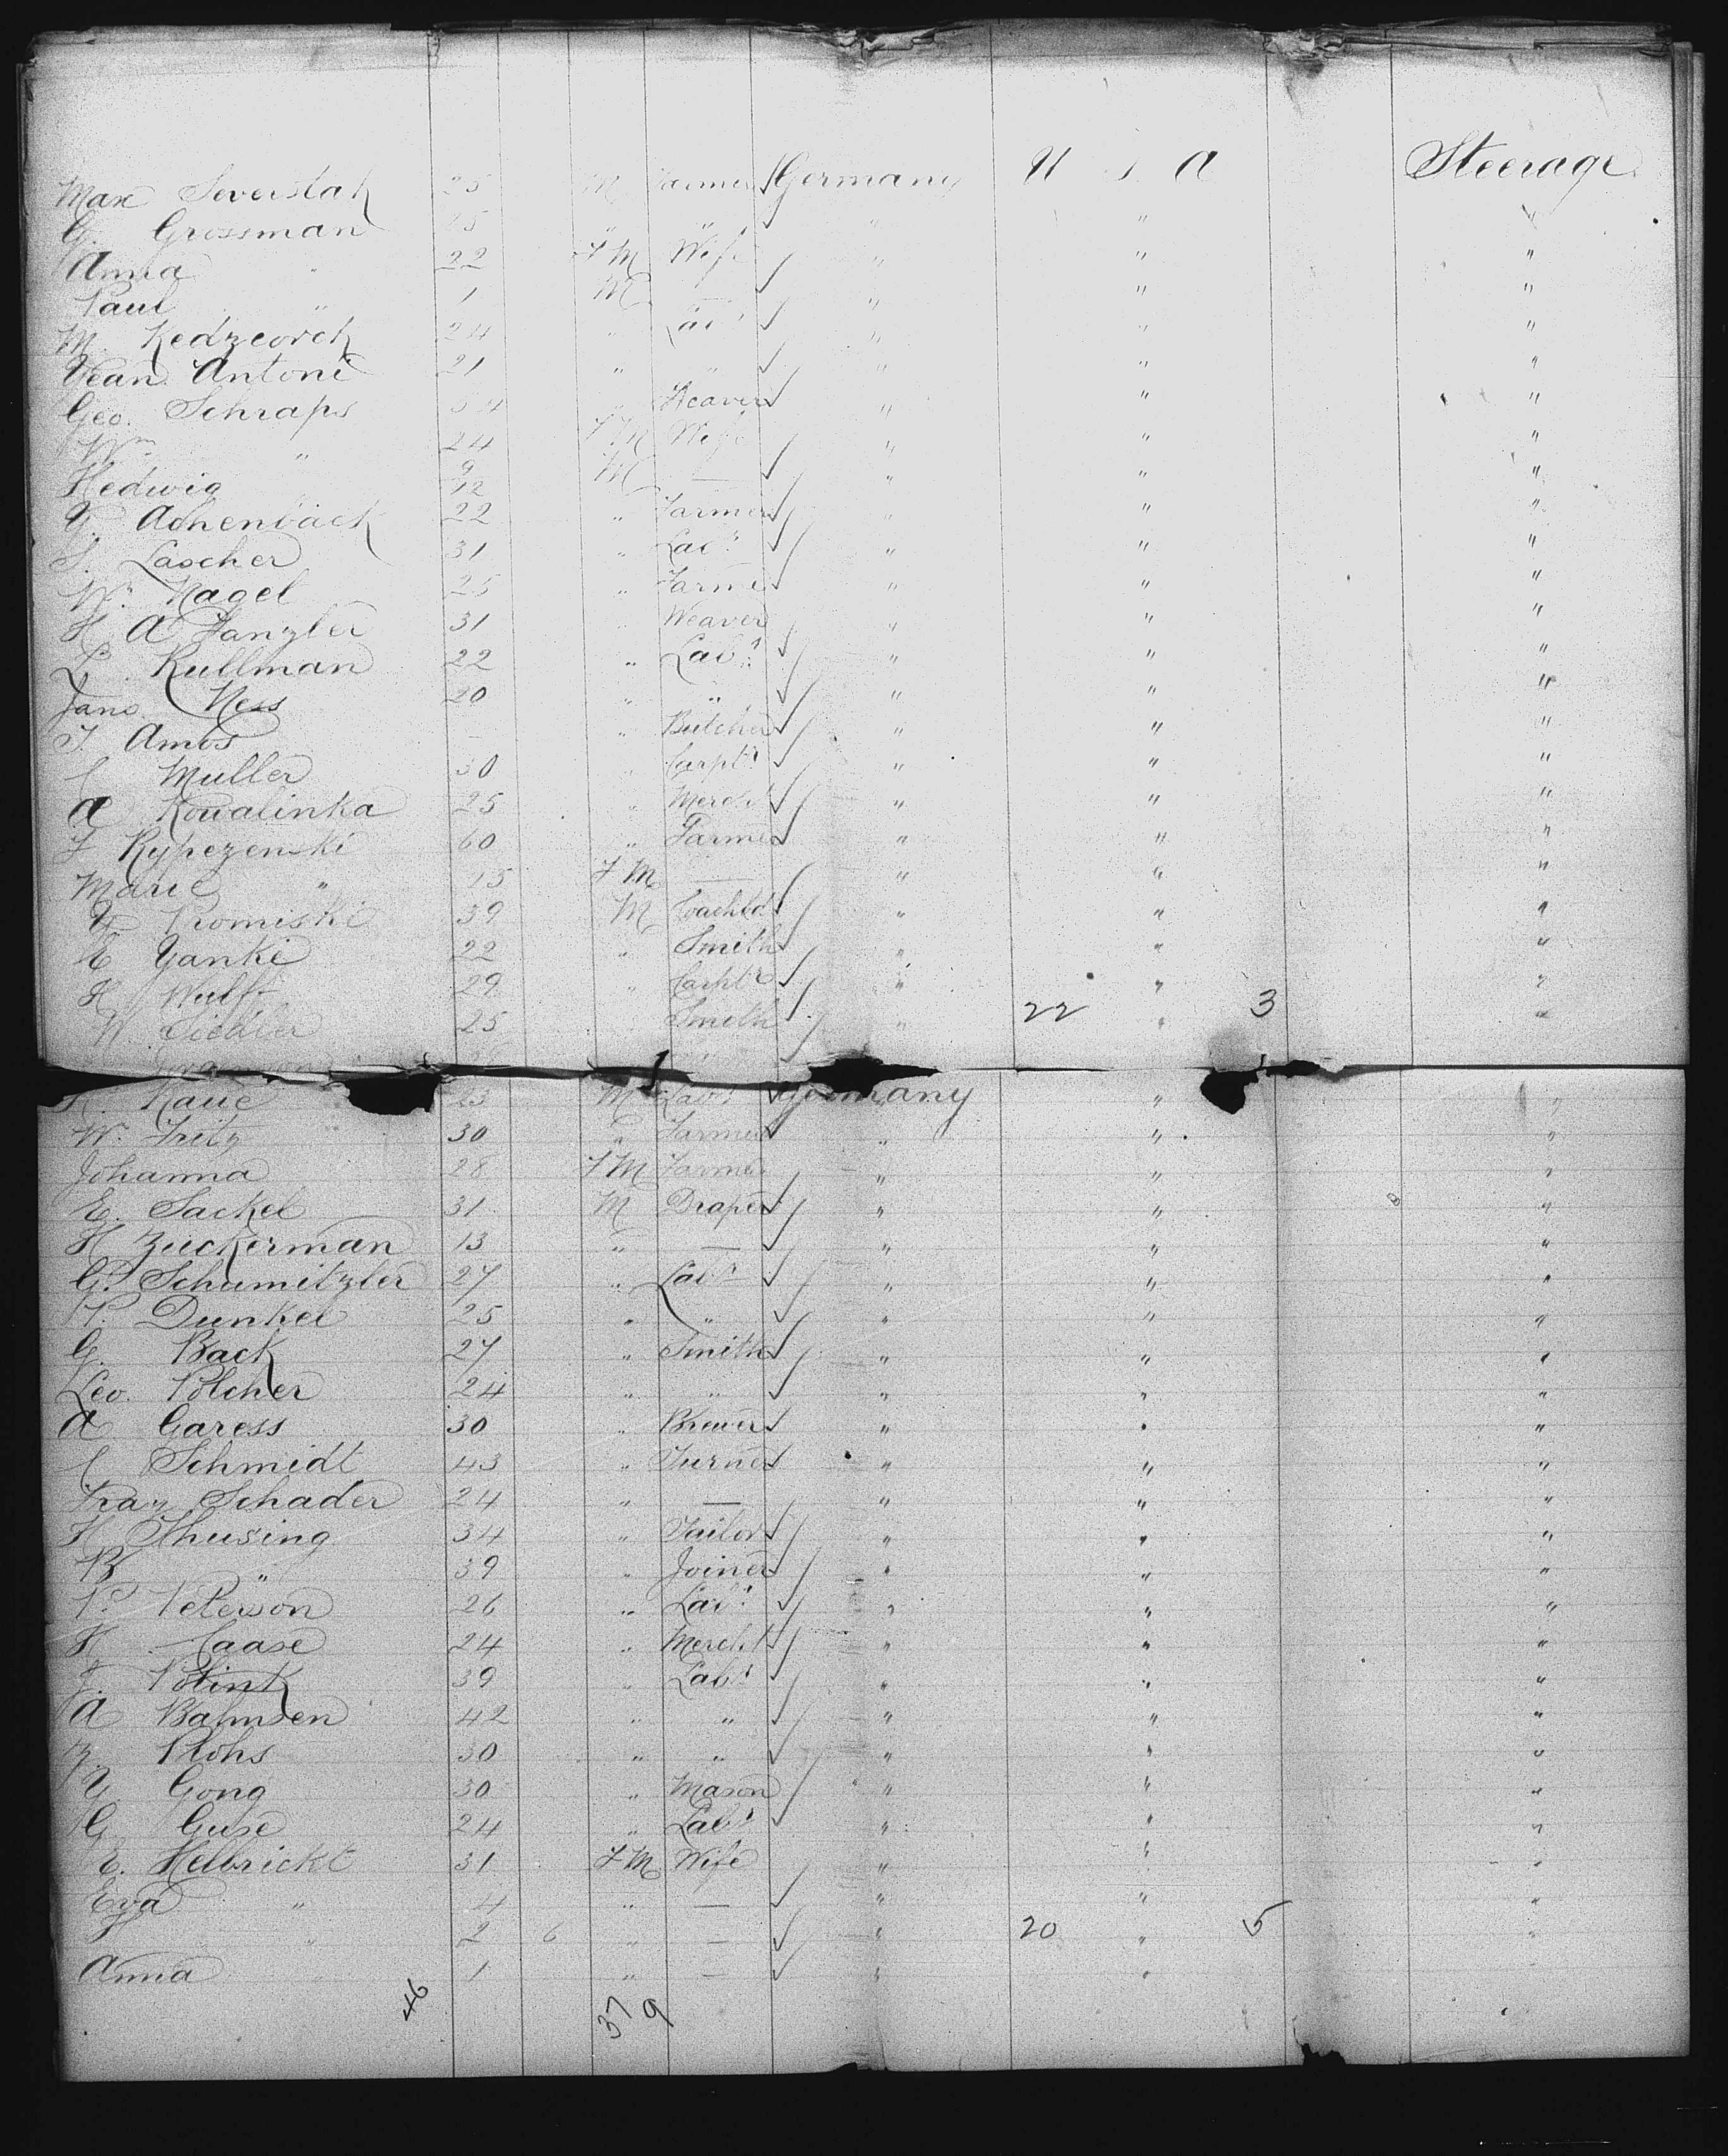 Max Severslak 25 M Farmer Germany U S A Steerage
G. Grossman 25 " " " " "
Anna " 22 FM Wife " " "
Paul " 1 M " " "
M. Kedzeorek 24 " Labr " " "
Jean Antoni 21 " " " " "
Geo. Schraps 34 " Weaver " " "
Wm " 24 FM Wife " " "
Hedwig 9/12 M — " " "
G. Achenback 22 " Farmer " " "
S. Lascher 31 " Labr " " "
Wm Nagel 25 " Farmer " " "
H A Fanzler 31 " Weaver " " "
L. Kullman 22 " Labr " " "
Jans Ness 20 " " " " "
J. Amos — " Butcher " " "
C Muller 30 " Carptr " " "
A Kowalinka 25 " Mercht " " "
F Rypezenski 60 " Farmer " " "
Marie " 15 FM — " " "
G. Promiski 39 M " " "
E Yanki 22 " Smith " " "
H Wulff 29 " Carptr " " "
W. Siedler 25 Smith " 22 " 3 "
K. Kaue 23 M Labr Germany " "
W. Fritz 30 " Farmer " " "
Johanna 28 FM Farmer " " "
E. Sackel 31 M Draper " " "
H Zuckerman 13 " — " " "
G. Schumitzler 27 " Labr " " "
P. Dunkel 25 " " " " "
G. Back 27 " Smith " " "
Leo. Polcher 24 " " " " "
A Garess 30 " Brewer " " "
C Schmidt 43 " Turner " " "
Franz Schader 24 " — " " "
H Thusing 34 " Tailor " " "
B " 39 " Joiner " " "
P. Peterson 26 " Labr " " "
H Caase 24 " Mercht " " "
J. Polink 39 " Labr " " "
A Bahnsen 42 " " " " "
Z. Rohs 30 " " " " "
Y Gong 30 " Mason " " "
G Guse 24 " Labr " " "
E. Helbrickt 31 FM Wife " " "
Eva " 4 " — " " "
" 2 6 " — " 20 " 5 "
Anna " 1 " — " "
46 37 9